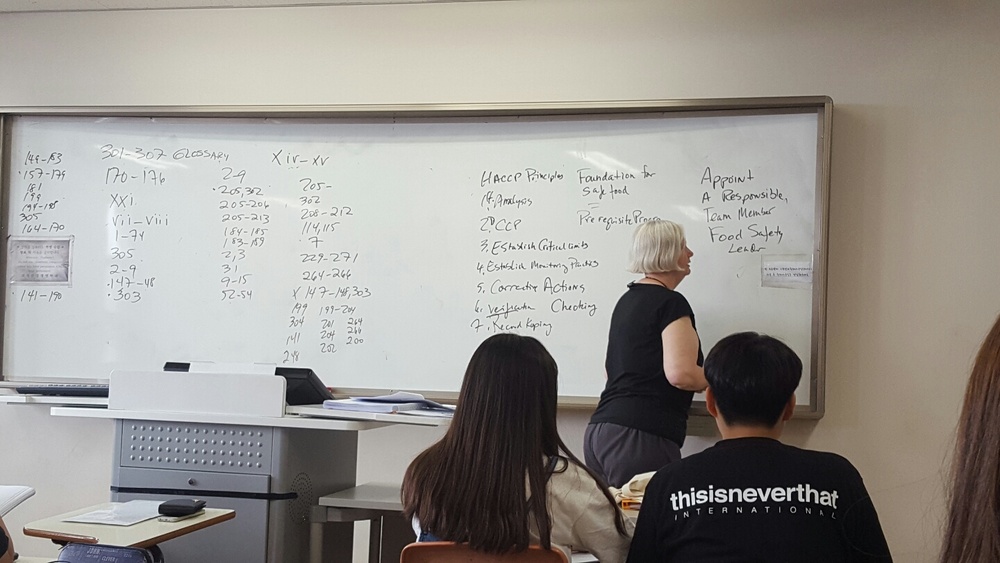 149-153
157-179
181
199
194-198
305
164-170
141-190
301-307 GLOSSARY
170-176
XXI
vii-viii
1-74
305
2-9
147-48
303
2-9
205,302
205-206
205-213
184-185
183-189
2,3
31
9-15
52-54
Xiv-xv
205-
302
208-212
114,115
7
229-271
264-266
X 147-148,303
199 199-204
304 201 264
141 204 266
202 200
248
HACCP Principles
Analysis
CCP
3. Establish Critical limits
4. Establish Monitoring
5. Corrective Actions
6. verification Checking
7. Record Keeping
Foundation for
safe food
=
Prerequisite
Appoint
A Responsible,
Team Member
Food Safety
Leader
thisisneverthat
INTERNATIONAL